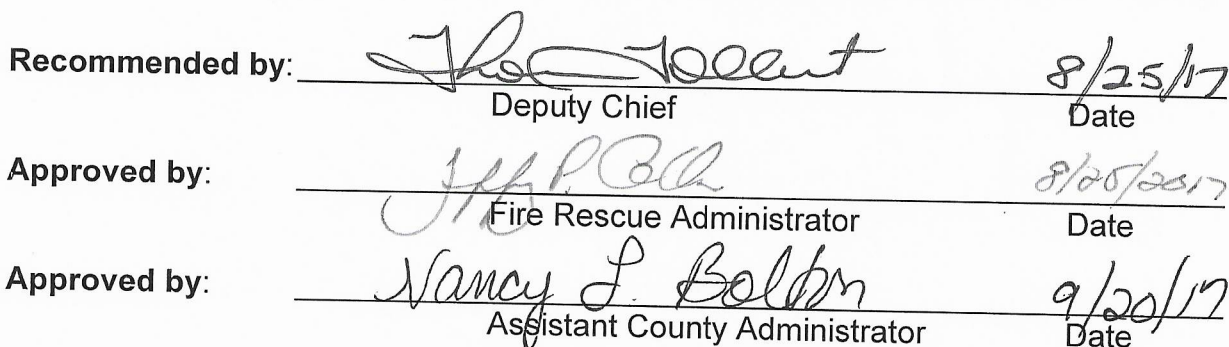 Recommended by: 8/25/17
Deputy Chief Date
Approved by: P. 8/25/2017
Fire Rescue Administrator Date
Approved by: Nancy L. Bolton 9/20/17
Assistant County Administrator Date